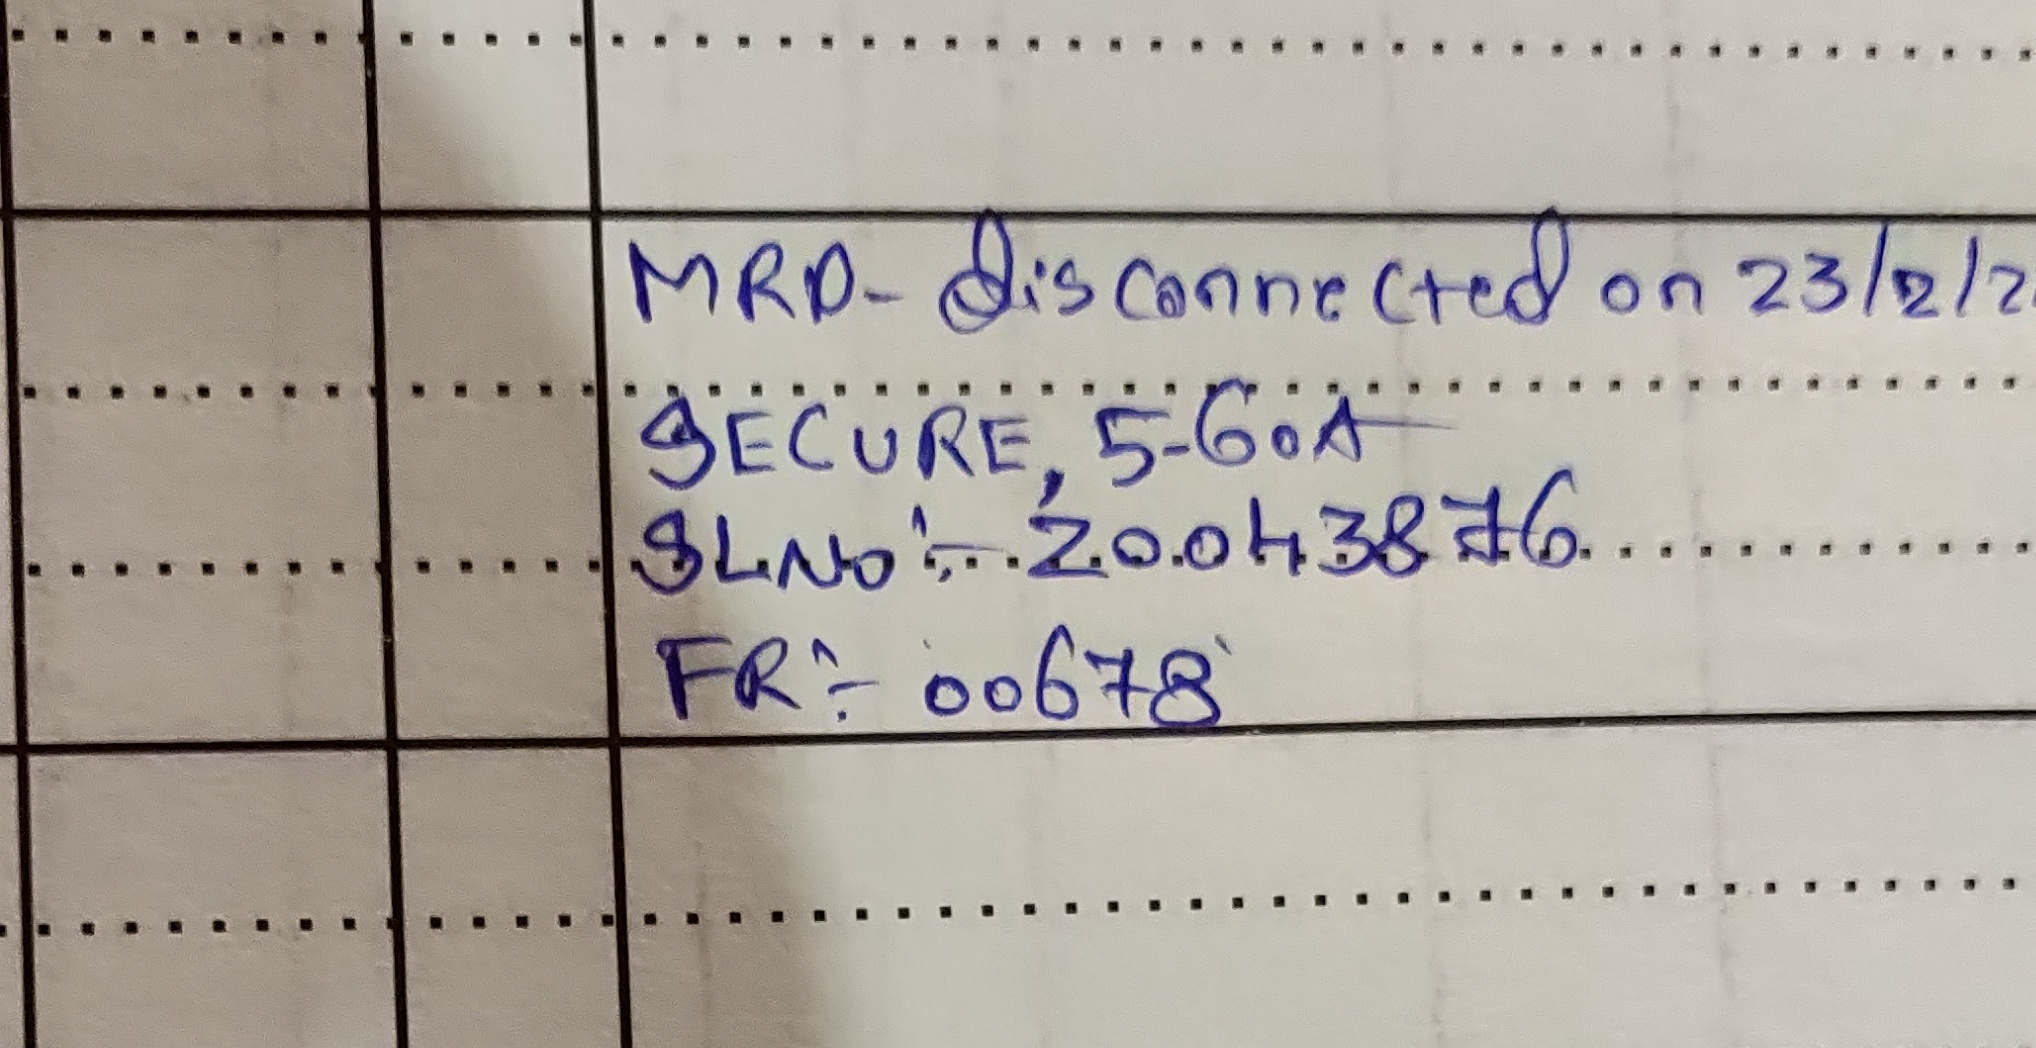 MRD- disconnected on 23/2/2
SECURE, 5-60A
SLNO:- 20043876
FR:- 00678